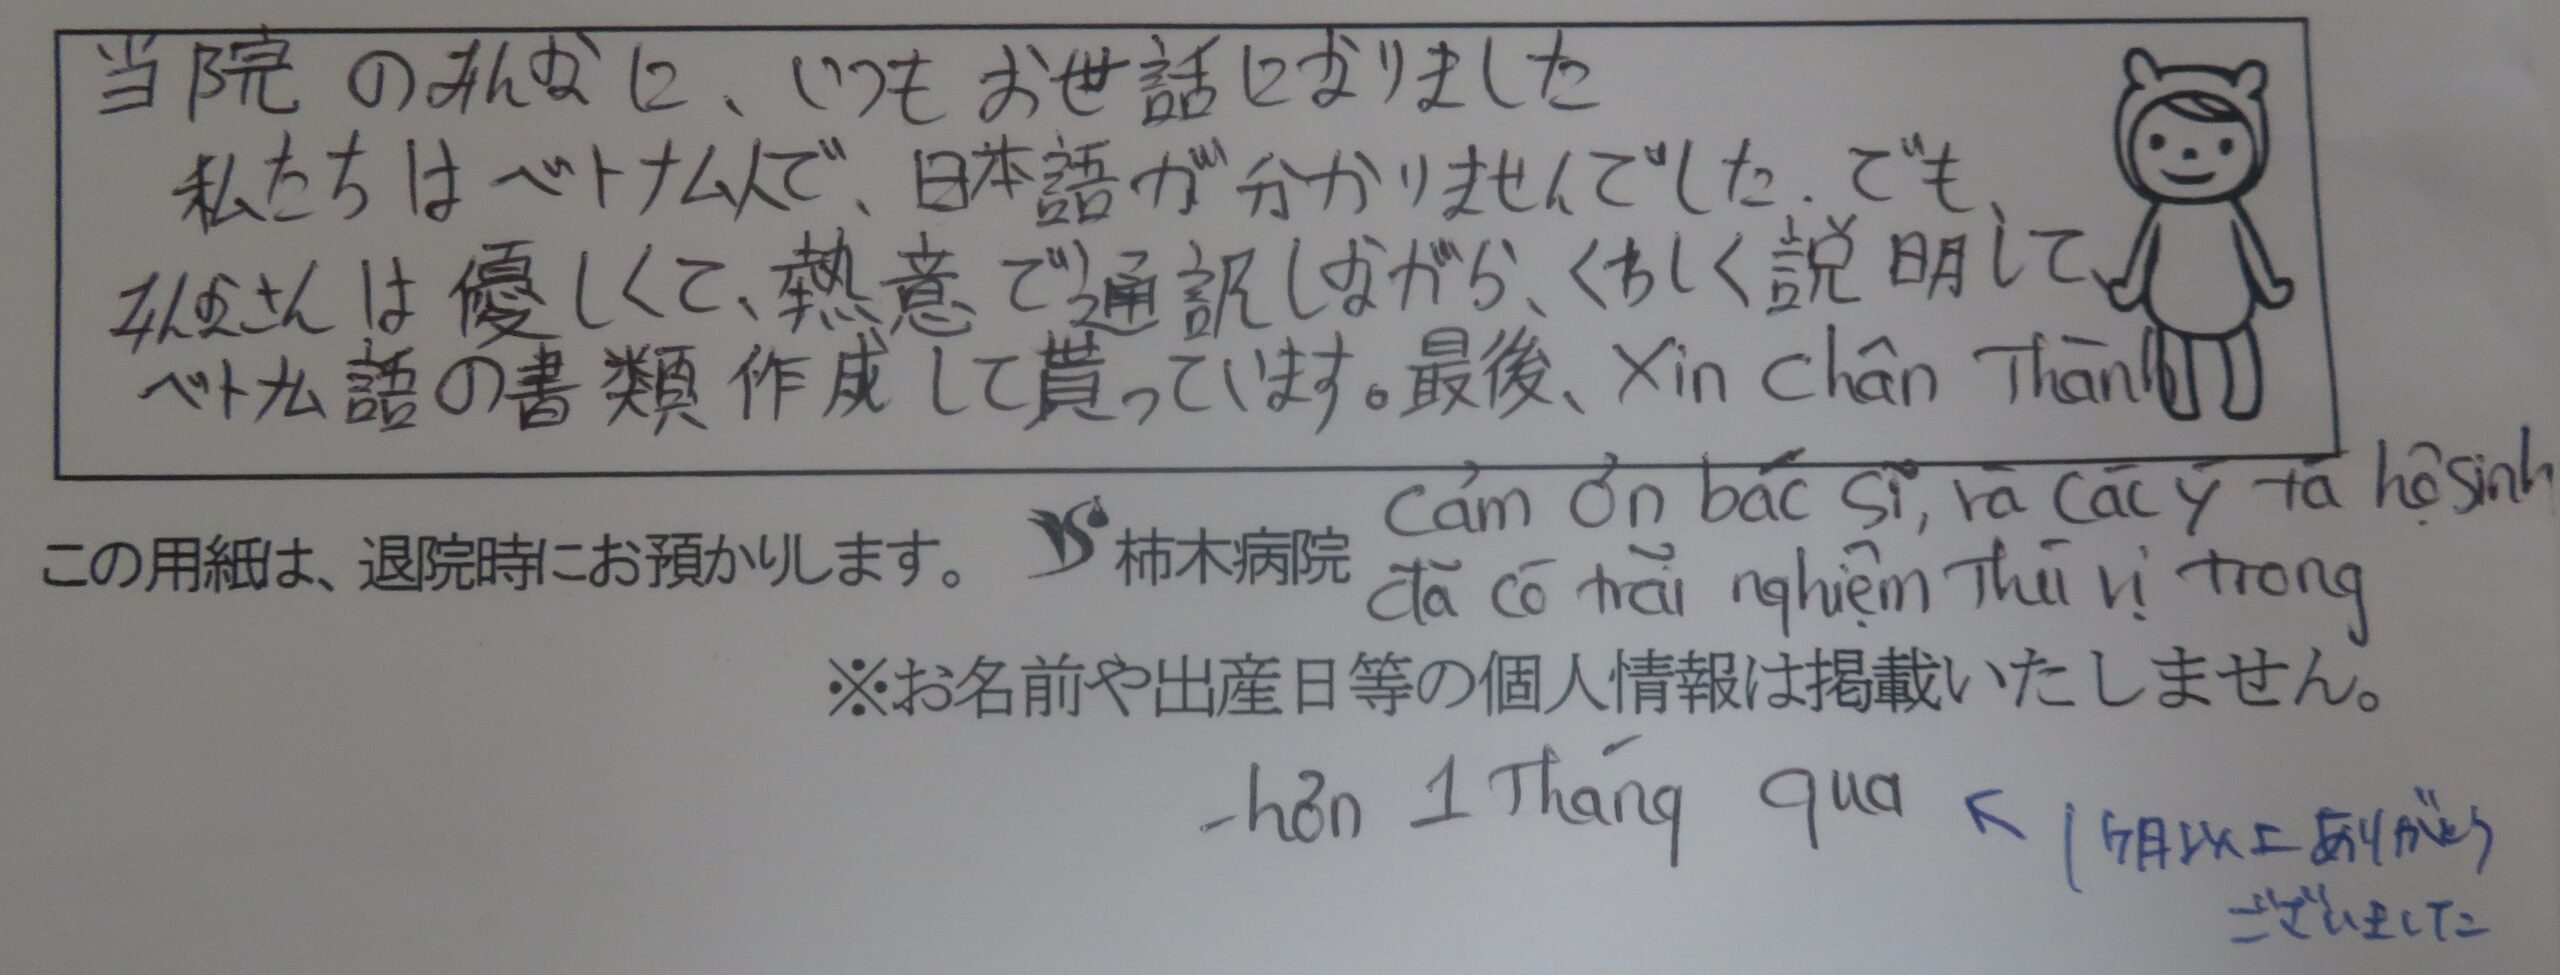 当院のみんなに、いつもお世話になりました
私たちはベトナム人で、日本語が分かりませんでした.でも、
みんなさんは優しくて、熱意で通訳しながら、くわしく説明して、
ベトナム語の書類作成して貰っています。最後、Xin chân Thành
cảm ơn bác sĩ, và các y tá hộ sinh
đã có trải nghiệm Thú vị trong
この用紙は、退院時にお預かりします。 柿木病院
※お名前や出産日等の個人情報は掲載いたしません。
-hơn 1 Tháng qua ↖ 1ヶ月以上ありがとう
ございました